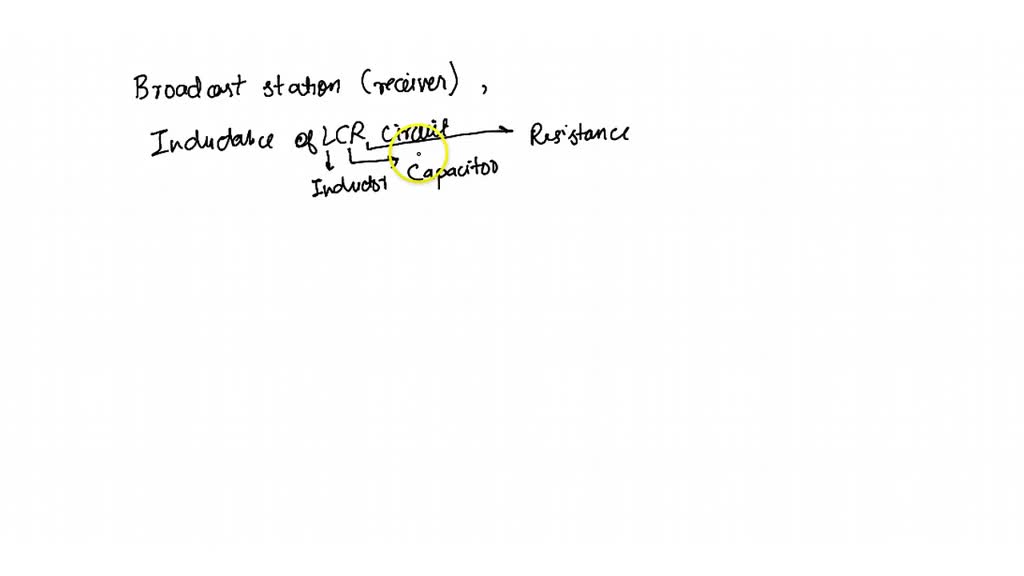 Broadcast station (receiver),
Inductance of LCR circuit → Resistance
Inductor Capacitor